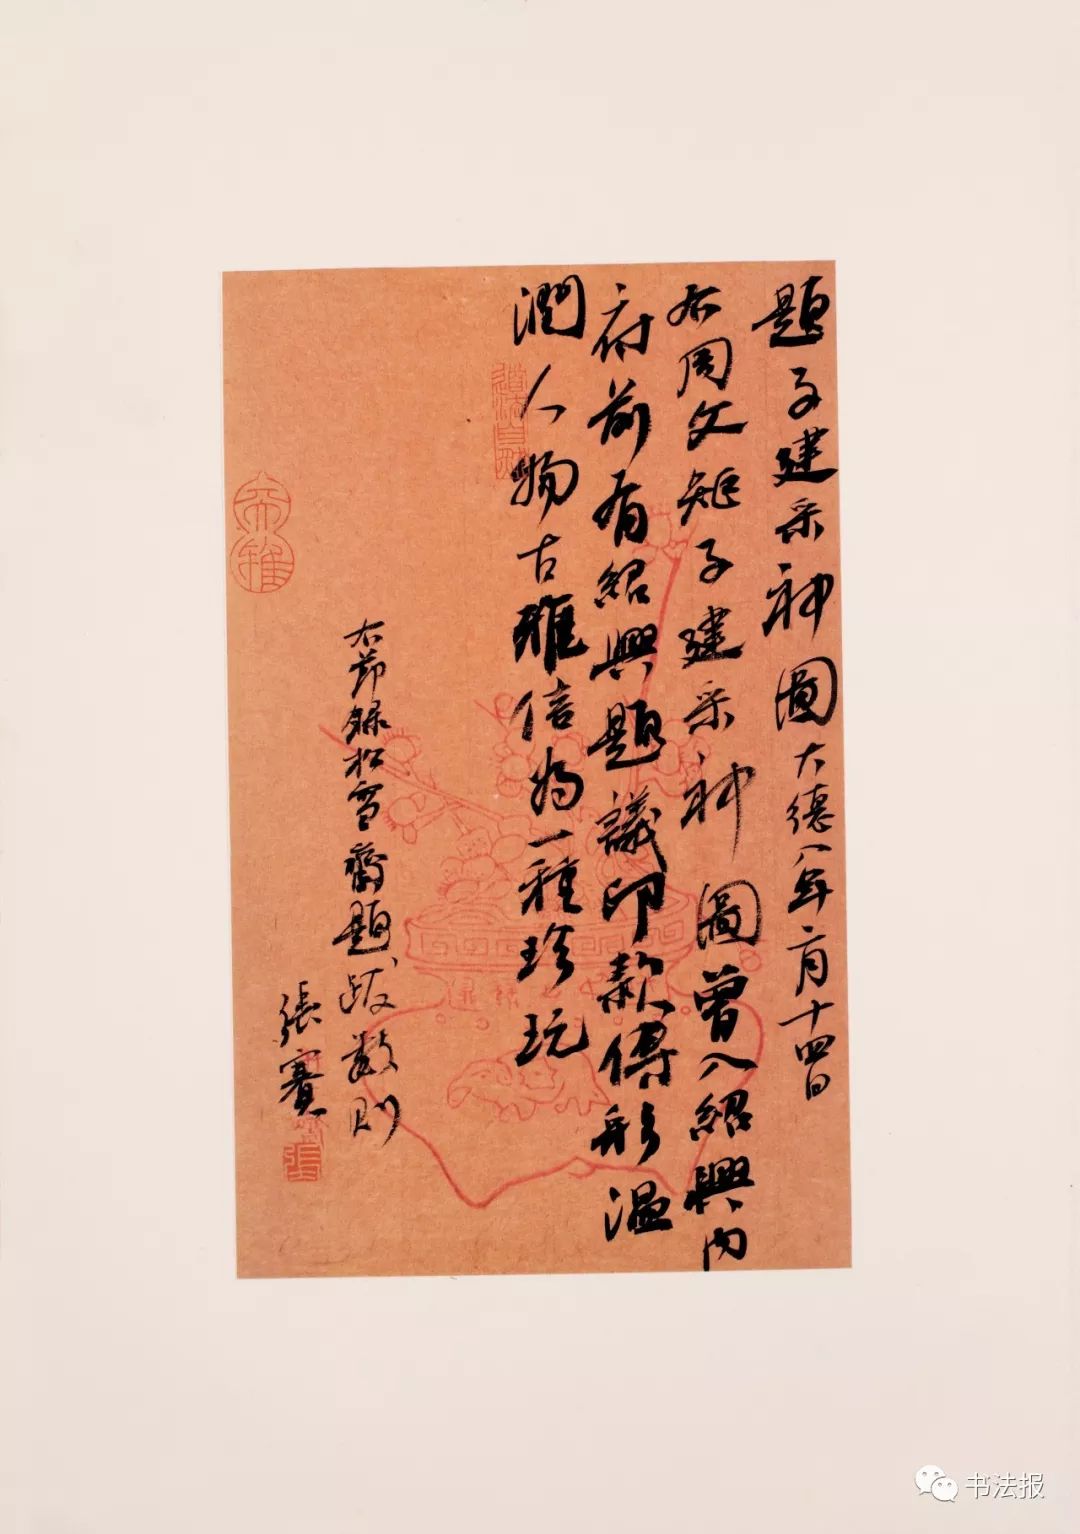 題子建采神圖大德八年二月十四日
右周文矩子建采神圖曾入紹興內
府前有紹興題議印款傳形溫
潤人物古雅信為一種珍玩
右節錄松雪齋題跋數則
張賽
书法报